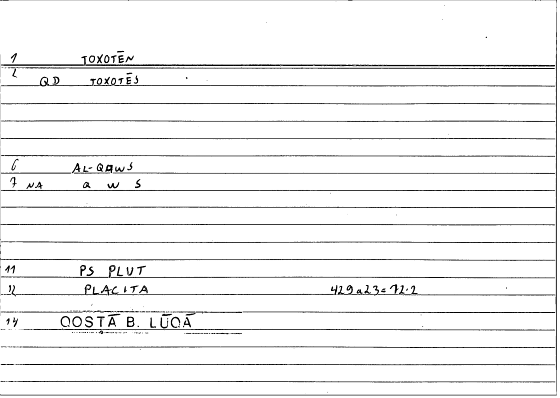 1 TOXOTĒN
2 QD TOXOTĒS
6 AL-QAWS
7 NA q w s
11 PS PLUT
12 PLACITA 429a23=72.2
14 QOSTĀ B. LŪQĀ